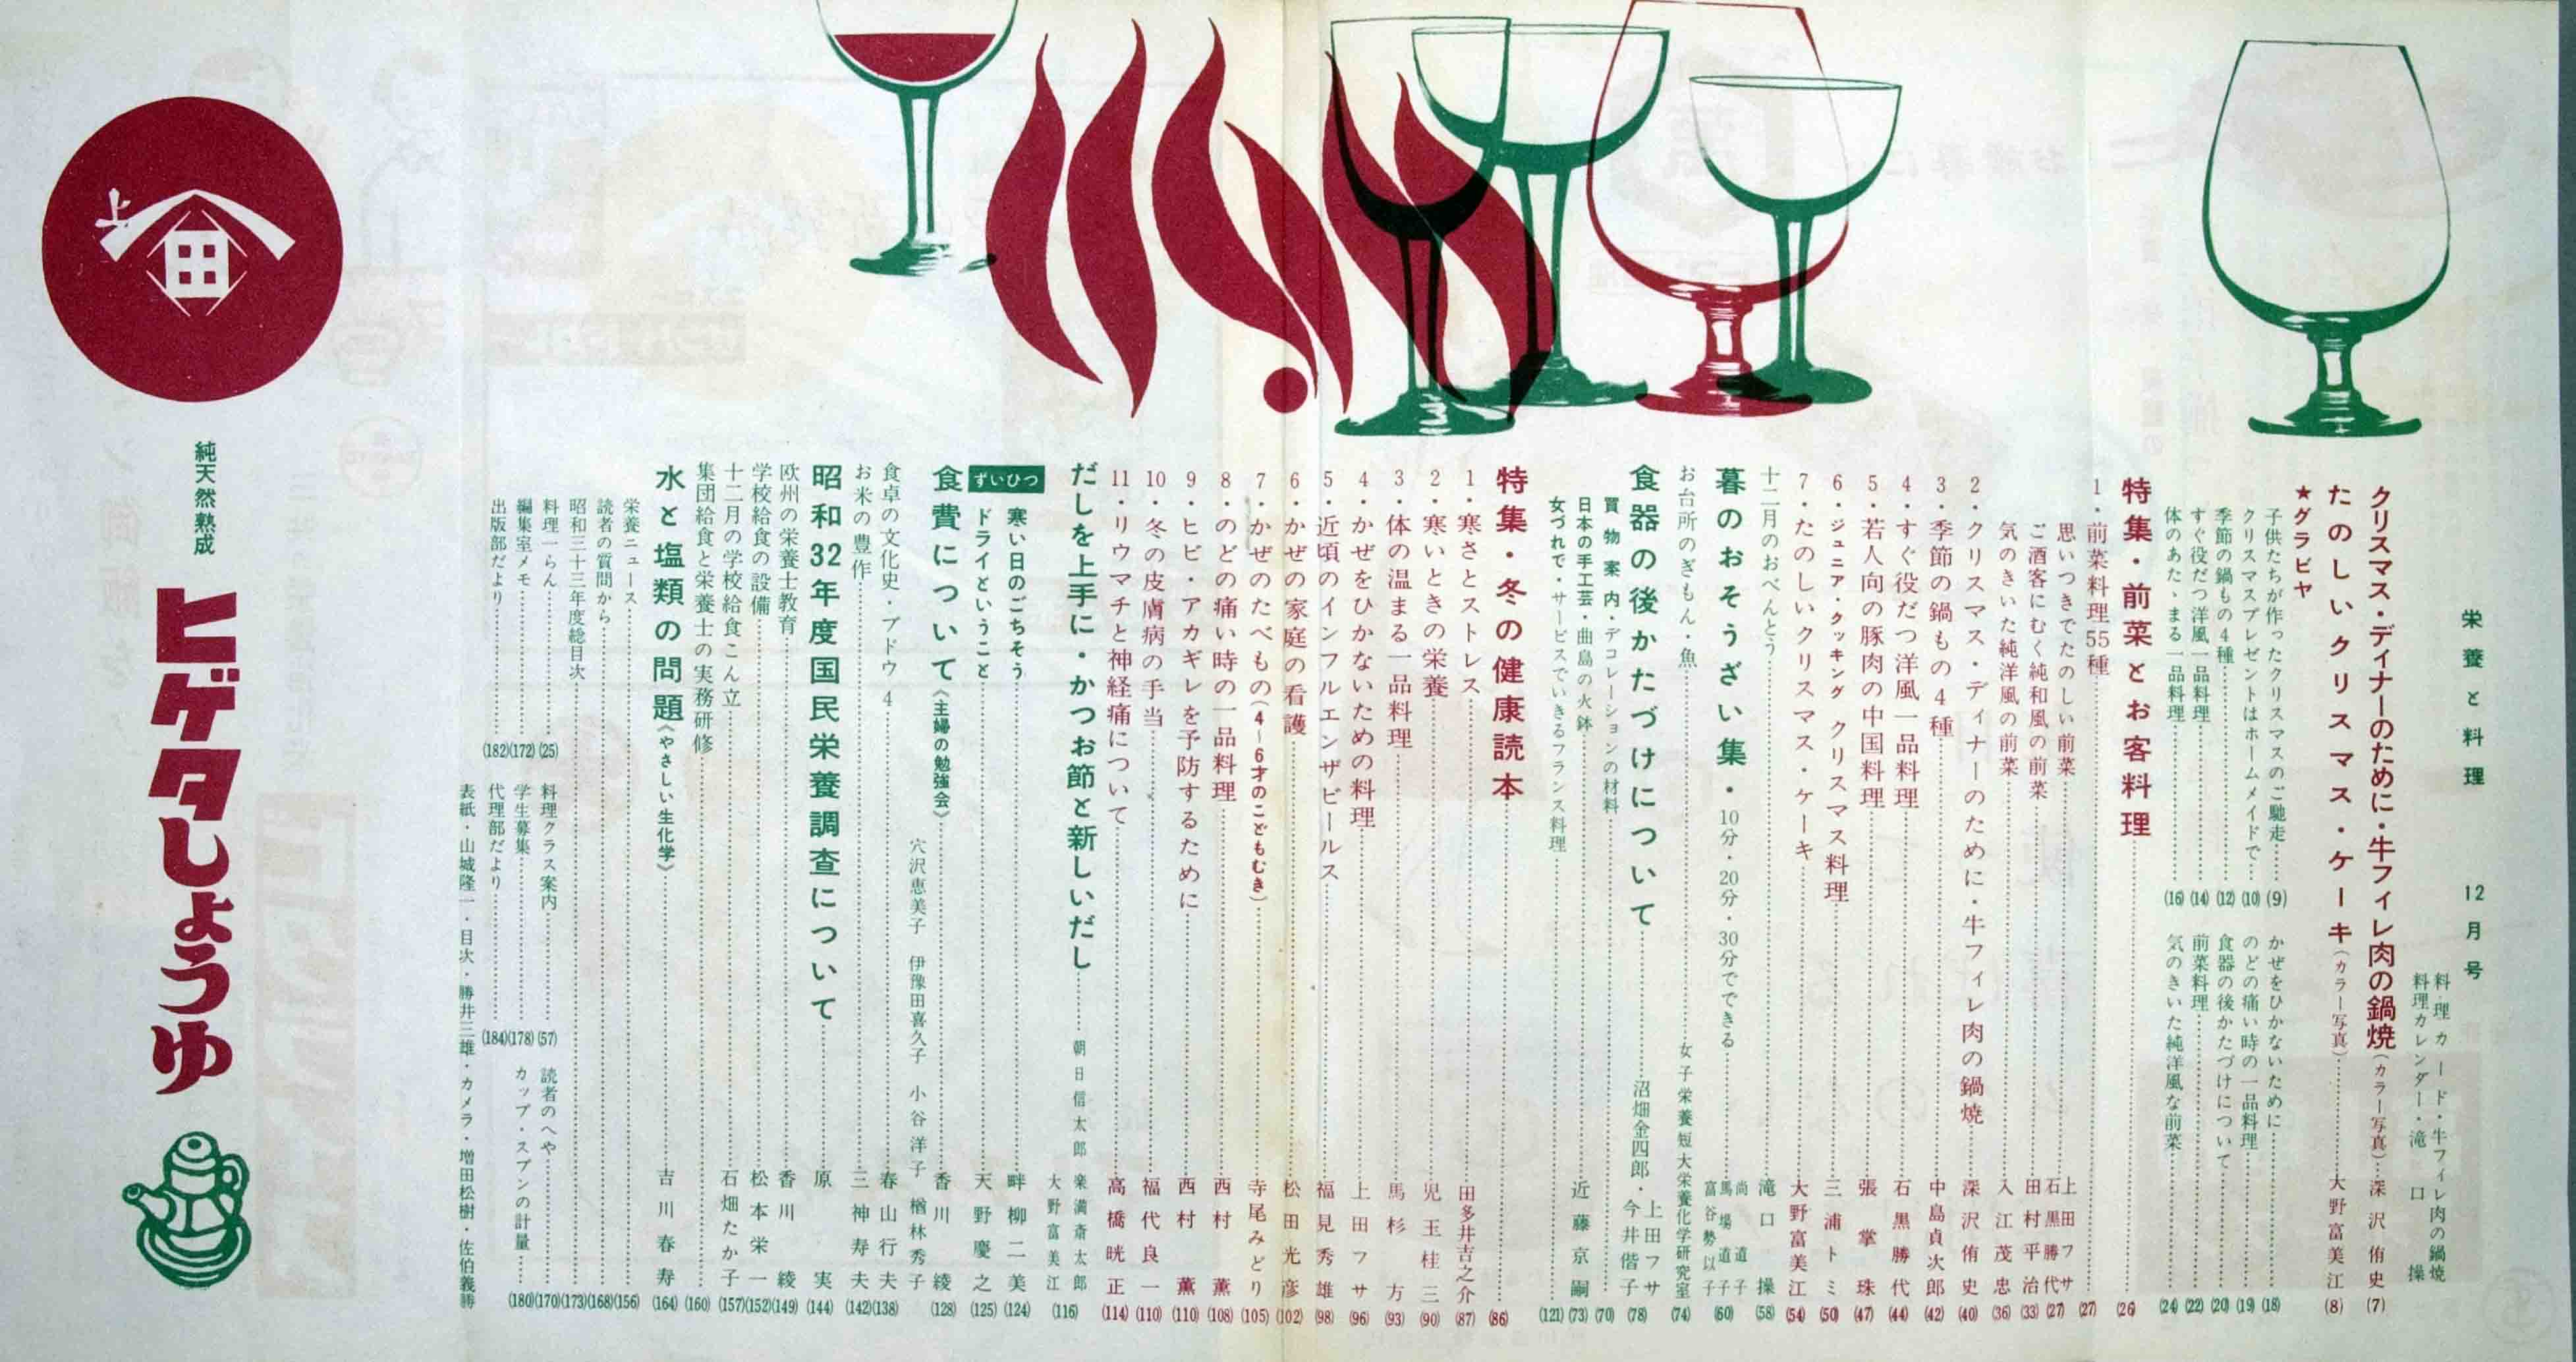 栄養と料理 12月号
料理カード・牛フィレ肉の鍋焼
料理カレンダー・滝口操
クリスマス・ディナーのために・牛フィレ肉の鍋焼(カラー写真)…深沢侑史(7)
たのしいクリスマス・ケーキ(カラー写真)…大野富美江(8)
★グラビヤ
子供たちが作ったクリスマスのご馳走…(9)
クリスマスプレゼントはホームメイドで…(10)
季節の鍋もの4種…(12)
すぐ役だつ洋風一品料理…(14)
体のあたゝまる一品料理…(16)
かぜをひかないために…(18)
のどの痛い時の一品料理…(19)
食器の後かたづけについて…(20)
前菜料理…(22)
気のきいた純洋風な前菜…(24)
特集・前菜とお客料理…(26)
1・前菜料理55種…(27)
思いつきでたのしい前菜…上田フサ 石黒勝代(27)
ご酒客にむく純和風の前菜…田村平治(33)
気のきいた純洋風の前菜…入江茂忠(36)
2・クリスマス・ディナーのために・牛フィレ肉の鍋焼…深沢侑史(40)
3・季節の鍋もの4種…中島貞次郎(42)
4・すぐ役だつ洋風一品料理…石黒勝代(44)
5・若人向の豚肉の中国料理…張掌珠(47)
6・ジュニア・クッキング クリスマス料理…三浦トミ(50)
7・たのしいクリスマス・ケーキ…大野富美江(54)
十二月のおべんとう…滝口操(58)
暮のおそうざい集・10分・20分・30分でできる…尚道子 馬場道子 富谷勢以子(60)
お台所のぎもん・魚…女子栄養短大栄養化学研究室(74)
食器の後かたづけについて…沼畑金四郎・上田フサ 今井偕子(78)
買物案内・デコレーションの材料…(70)
日本の手工芸・曲島の火鉢…近藤京嗣(73)
女づれで・サービスでいきるフランス料理…(121)
特集・冬の健康読本…(86)
1・寒さとストレス…田多井吉之介(87)
2・寒いときの栄養…児玉桂三(90)
3・体の温まる一品料理…馬杉方(93)
4・かぜをひかないための料理…上田フサ(96)
5・近頃のインフルエンザビールス…福見秀雄(98)
6・かぜの家庭の看護…松田光彦(102)
7・かぜのたべもの(4〜6才のこどもむき)…寺尾みどり(105)
8・のどの痛い時の一品料理…西村薫(108)
9・ヒビ・アカギレを予防するために…西村薫(110)
10・冬の皮膚病の手当…福代良一(110)
11・リウマチと神経痛について…高橋晄正(114)
だしを上手に・かつお節と新しいだし…朝日信太郎 楽満斎太郎 大野富美江(116)
ずいひつ
寒い日のごちそう…畔柳二美(124)
ドライということ…天野慶之(125)
食費について《主婦の勉強会》…香川綾(128)
穴沢恵美子 伊豫田喜久子 小谷洋子 楢林秀子
食卓の文化史・ブドウ4…春山行夫(138)
お米の豊作…三神寿夫(142)
昭和32年度国民栄養調査について…原実(144)
欧州の栄養士教育…香川綾(149)
学校給食の設備…松本栄一(152)
十二月の学校給食こん立…石畑たか子(157)
集団給食と栄養士の実務研修…(160)
水と塩類の問題《やさしい生化学》…吉川春寿(164)
栄養ニュース…(156)
読者の質問から…(168)
昭和三十三年度総目次…(173)
料理一らん…(25)
料理クラス案内…(57)
読者のへや…(170)
編集室メモ…(172)
学生募集…(178)
カップ・スプンの計量…(180)
出版部だより…(182)
代理部だより…(184)
表紙・山城隆一・目次・勝井三雄・カメラ・増田松樹・佐伯義勝
上
田
純天然熟成
ヒゲタしょうゆ